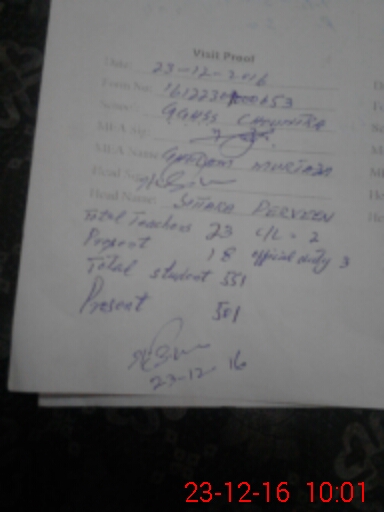 Visit Proof
Date: 23-12-2016
Form No:
School: GGHSS CHOUNTRA
MEA Sig:
MEA Name GHULAM MURTAZA
Head Sig:
Head Name: SITARA PERVEEN
Total Teachers 23 C/L = 2
Present 18 official duty 3
Total student 551
Present 501
23-12-16
23-12-16 10:01